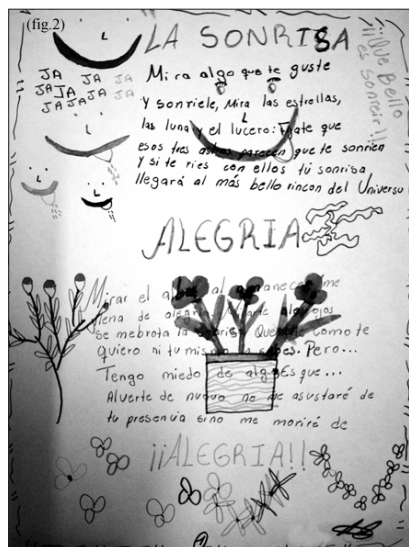 (fig.2)
LA SONRISA
¡¡¡Que Bello
es Sonreir!!!
JA JA JA
JA JA JA JA
JA JA JA
Mira algo que te guste
Y sonriele, Mira las estrellas,
las luna y el lucero: Fijate que
esos tres astros parecen que te sonríen
y si te ries con ellos tú sonrisa
llegará al más bello rincon del Universo
ALEGRIA
Mirar el al amanecer me
llena de alegria ojos
Se me brota la sonrisa Que como te
quiero ni tu mismo Pero...
Tengo miedo de algo Es que...
Al verte de nuevo no me asustaré de
tu presencia sino me moriré de
¡¡ALEGRIA!!